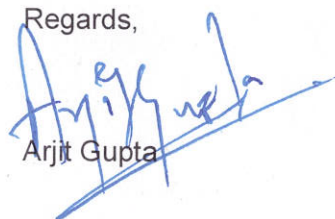 Regards,
Arjit Gupta
Arjit Gupta